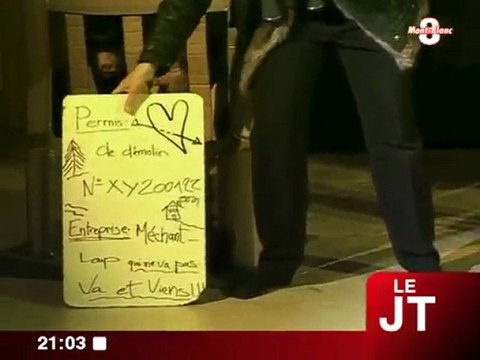 8
Mont Blanc
Permis
de démolir
N° XY200122
Entreprise: Méchant
Loup qui ne va pas
Va et Viens!!!
LE
JT
21:03